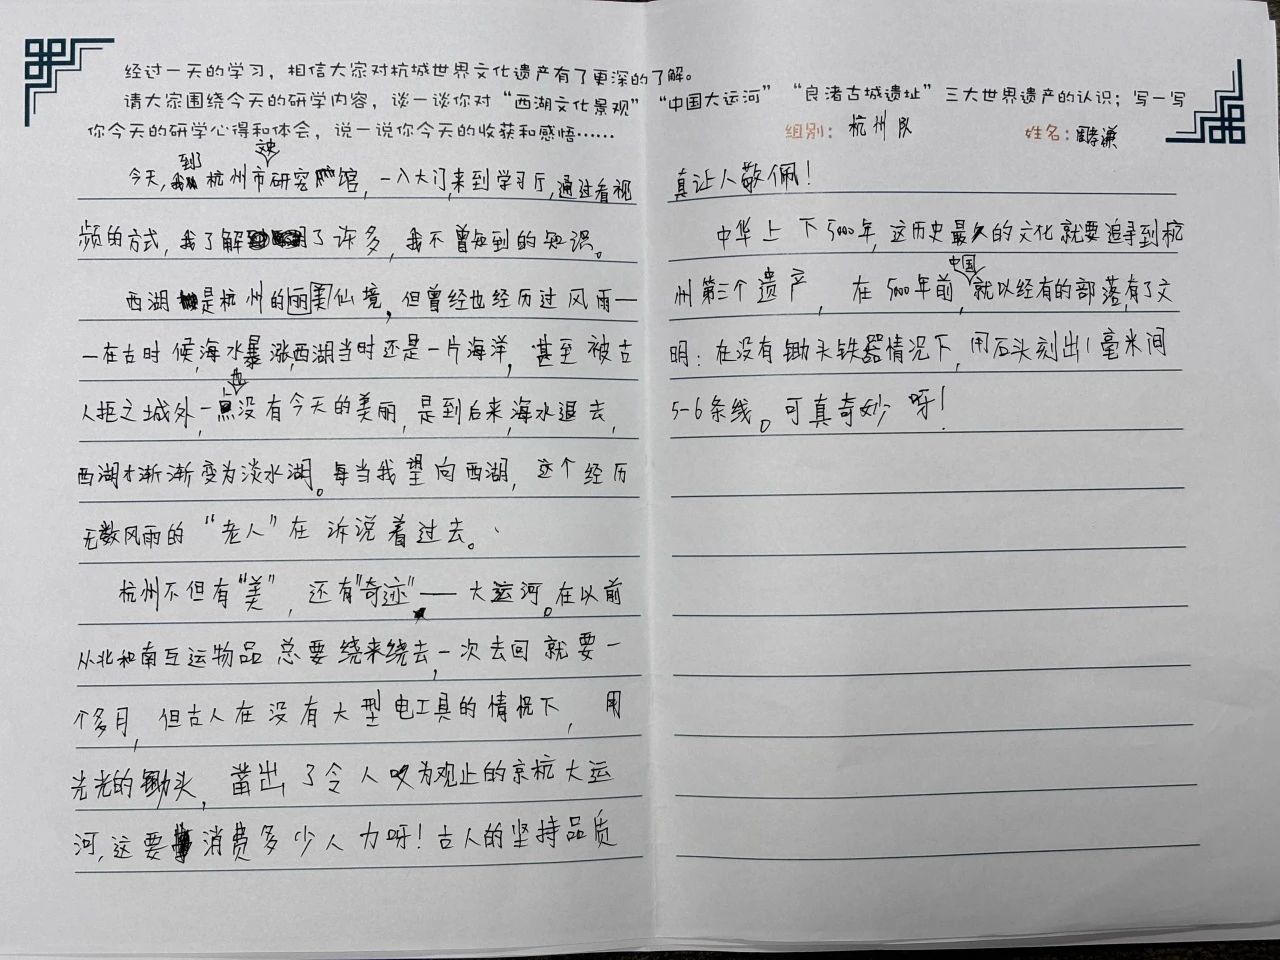 经过一天的学习，相信大家对杭城世界文化遗产有了更深的了解。
请大家围绕今天的研学内容，谈一谈你对“西湖文化景观”“中国大运河”“良渚古城遗址”三大世界遗产的认识；写一写
你今天的研学心得和体会，说一说你今天的收获和感悟……
组别：杭州队
姓名：周孝谦
今天，到杭州市史研究馆，一入大门，来到学习厅，通过看视
频的方式，我了解了许多，我不曾知到的知识。
西湖是杭州的丽美仙境，但曾经也经历过风雨—
—在古时候，海水暴涨，西湖当时还是一片海洋，甚至被古
人拒之城外，一点也没有今天的美丽，是到后来，海水退去，
西湖才渐渐变为淡水湖。每当我望向西湖，这个经历
无数风雨的“老人”在诉说着过去。
杭州不但有“美”，还有“奇迹”——大运河。在以前
从北和南互运物品总要绕来绕去，一次去回就要一
个多月，但古人在没有大型电工具的情况下，用
光光的锄头，凿出了令人叹为观止的京杭大运
河，这要消费多少人力呀！古人的坚持品质
真让人敬佩！
中华上下5000年，这历史最久的文化就要追寻到杭
州第三个遗产，在5000年前，中国就以经有的部落，有了文
明：在没有锄头铁器情况下，用石头刻出1毫米间
5-6条线。可真奇妙呀！